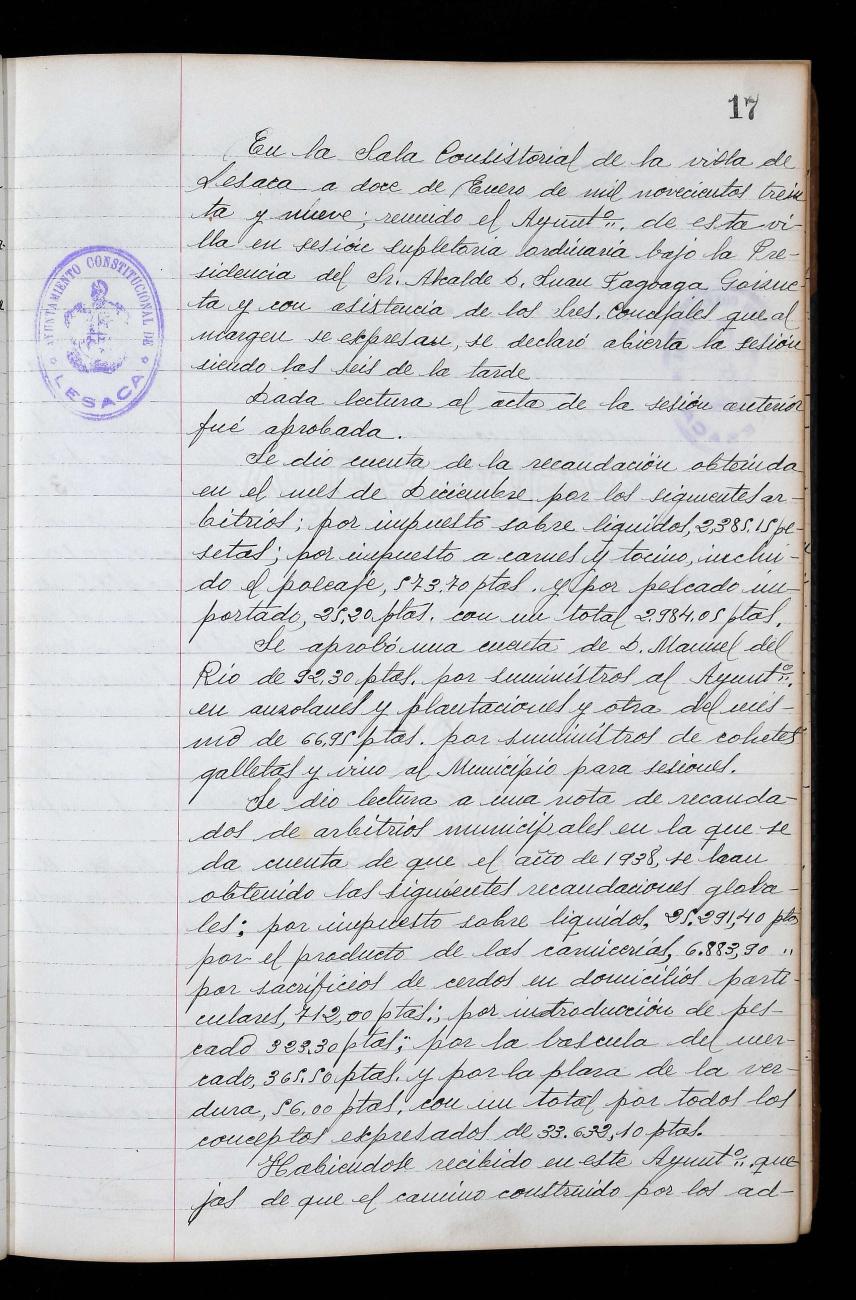 17
En la Sala Consistorial de la villa de
Lesaca a doce de Enero de mil novecientos trein
ta y nueve; reunido el Ayuntº. de esta vi-
lla en sesión supletoria ordinaria bajo la Pre-
sidencia del Sr. Alcalde D. Juan Fagoaga Goizue-
ta y con asistencia de los Sres. Concejales que al
margen se expresan, se declaró abierta la sesión
siendo las seis de la tarde
Dada lectura al acta de la sesión anterior
fué aprobada.
Se dio cuenta de la recaudación obtenida
en el mes de Diciembre por los siguientes ar-
bitrios; por impuesto sobre liquidos, 2,385.15 pe-
setas; por impuesto a carnes y tocino, inclui-
do el poleaje, 573.70 ptas. y por pescado im-
portado, 25,20 ptas. con un total 2.984.05 ptas.
Se aprobó una cuenta de D. Manuel del
Rio de 92,30 ptas. por suministros al Ayuntº.
en auzolanes y plantaciones y otra del mis-
mo de 66,95 ptas. por suministros de cohetes
galletas y vino al Municipio para sesiones.
Se dio lectura a una nota de recauda-
dos de arbitrios municipales en la que se
da cuenta de que el año de 1938, se han
obtenido las siguientes recaudaciones globa-
les; por impuesto sobre liquidos, 25.291,40 ptas
por el producto de las carnicerías, 6.883,90 "
por sacrificios de cerdos en domicilios parti-
culares, 712,00 ptas.; por introducción de pes-
cado 323.30 ptas; por la bascula del mer-
cado, 365.50 ptas. y por la plaza de la ver-
dura, 56.00 ptas, con un total por todos los
conceptos expresados de 33.632,10 ptas.
Habiendose recibido en este Ayuntº. que
jas de que el camino construido por los ad-
AYUNTAMIENTO CONSTITUCIONAL DE
LESACA